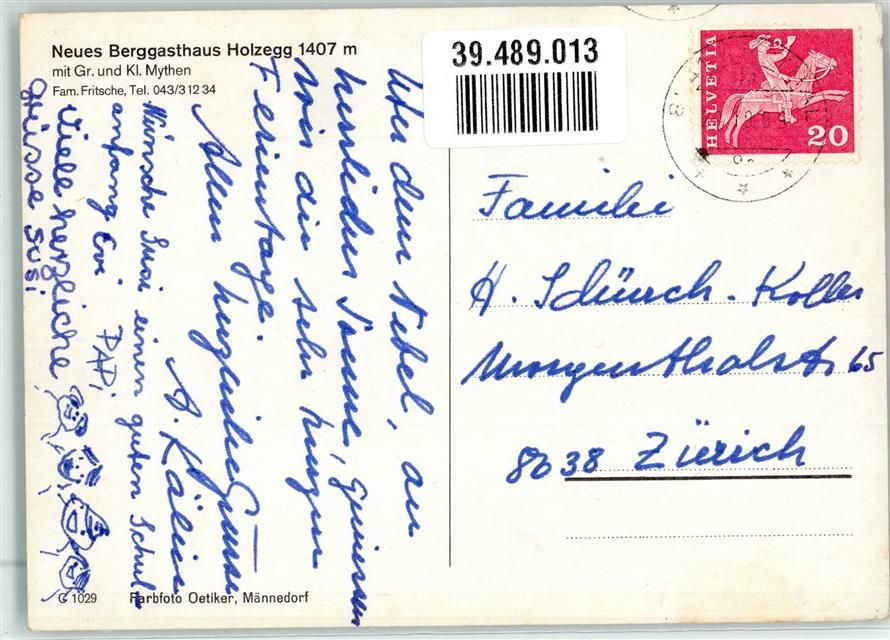 Neues Berggasthaus Holzegg 1407 m
mit Gr. und Kl. Mythen
Fam. Fritsche, Tel. 043/3 12 34
39.489.013
HELVETIA
20
Über dem Nebel, an
herrlicher Sonne, geniessen
wir die sehr kurzen
Ferientage.
Allen herzliche Grüsse
A. Kälin
Wünsche Susi einen guten Schul-
anfang Evi PAPI
Viele herzliche
Grüsse Susi
Familie
H. Schürch-Koller
Morgenthalstr 65
8038 Zürich
C 1029
Farbfoto Oetiker, Männedorf